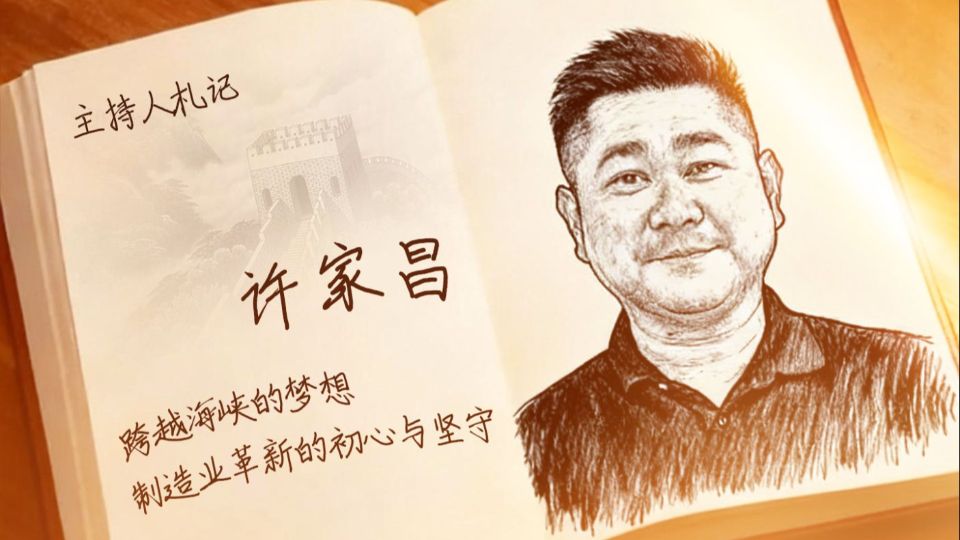 主持人札记
许家昌
跨越海峡的梦想
制造业革新的初心与坚守